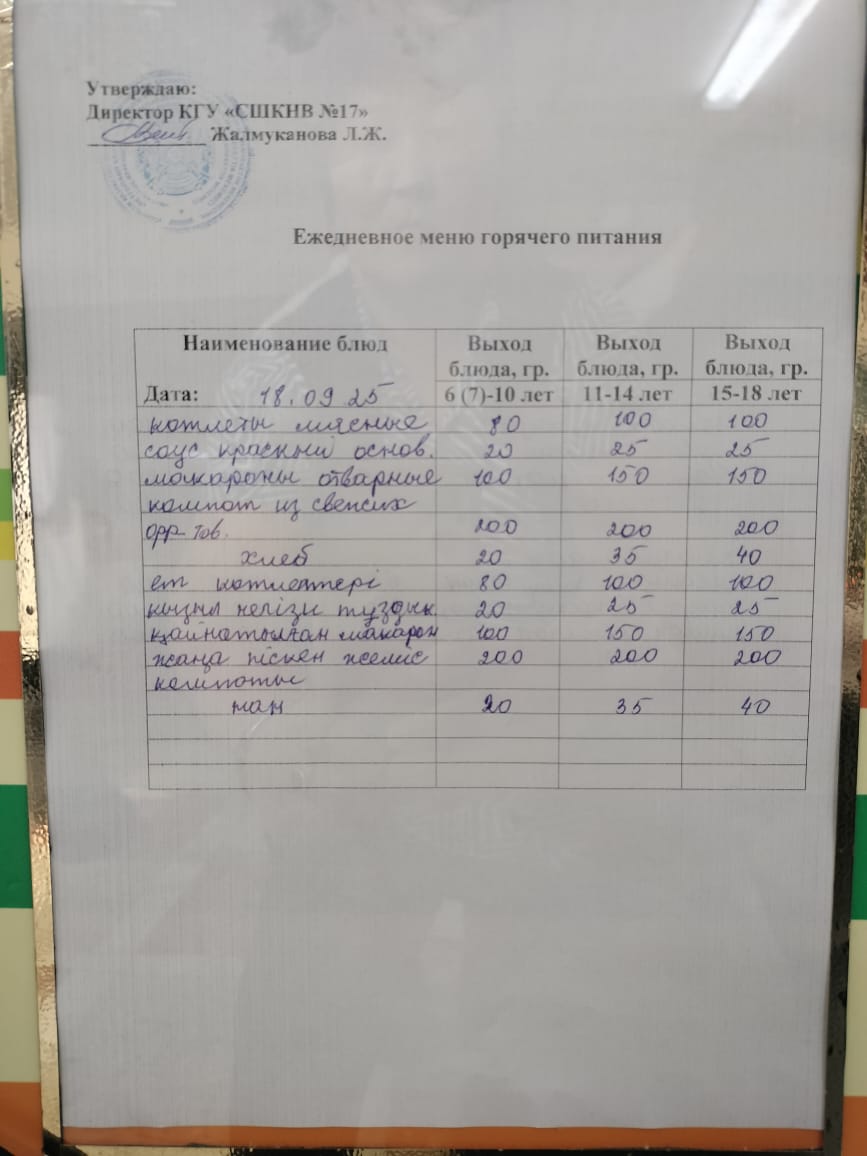 Утверждаю:
Директор КГУ «СШКНВ №17»
Жалмуканова Л.Ж.
Ежедневное меню горячего питания
Наименование блюд Выход блюда, гр. Выход блюда, гр. Выход блюда, гр.
Дата: 18.09.25 6 (7)-10 лет 11-14 лет 15-18 лет
котлеты мясные 80 100 100
соус красный основ. 20 25 25
макароны отварные 100 150 150
компот из свежих
фр-тов. 200 200 200
хлеб 20 35 40
ет котлеттері 80 100 100
кызыл негізгі туздык 20 25 25
қайнатылған макарон 100 150 150
жаңа піскен жеміс 200 200 200
компоты
нан 20 35 40